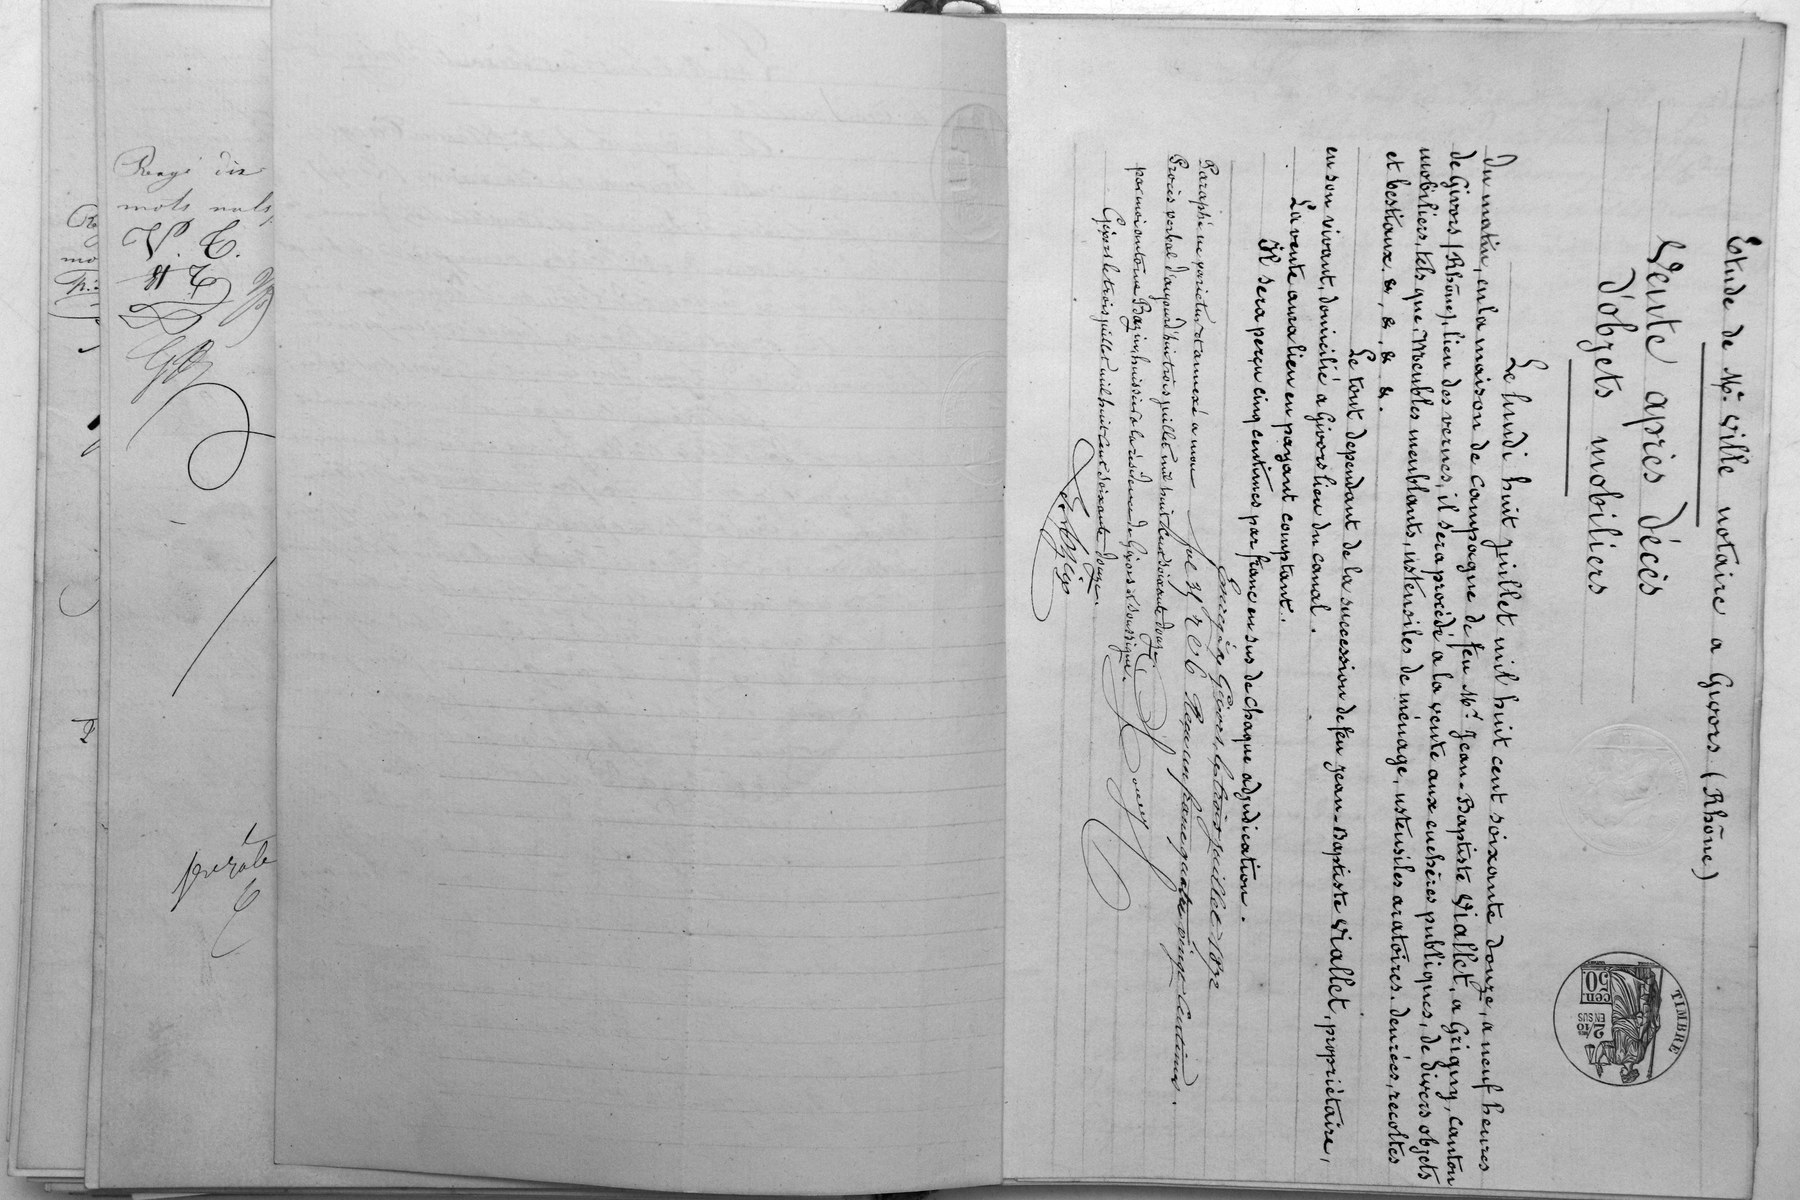 Rayé dix
mots nuls
V. C.
Etude de Me. Ville notaire a Givors (Rhône)
Vente après décès
d'objets mobiliers
TIMBRE
50
cen
2/10
EN SUS
Le lundi huit juillet mil huit cent soixante douze, a neuf heures
du matin, en la maison de campagne de feu Mr. Jean-Baptiste Viallet, a Grigny, canton
de Givors (Rhône), lieu des vernes, il sera procédé a la vente aux enchères publiques, de divers objets
mobiliers, tels que, Meubles meublants, ustensiles de ménage, ustensiles aratoires, denrées, recoltes
et bestiaux. &, &, & &.
Le tout dependant de la succession de feu Jean-Baptiste Viallet, propriètaire,
en son vivant, domicilié a Givors lieu du canal.
La vente aura lieu en payant comptant.
Il sera perçu cinq centimes par franc en sus de chaque adjudication.
Paraphé ne varietur et annexé a mon
Procès verbal d'aujourd'hui trois juillet mil huit cent soixante douze.
par moi antoine Bazin huissier a la résidence de Givors et soussigné.
Givors le trois juillet mil huit cent soixante douze.
Enregistré a Givors, le trois juillet 1872
Reçu un franc quatre vingt centimes.